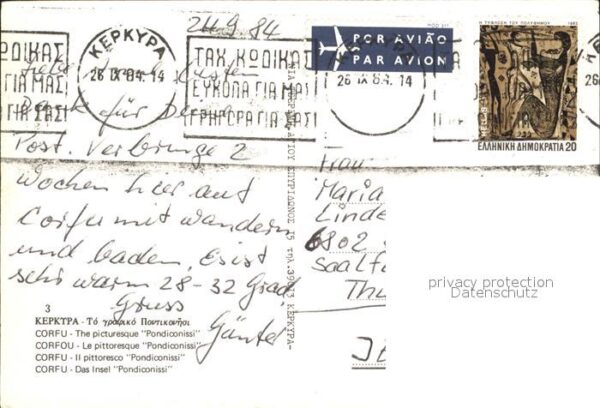 24.9.84
ΚΕΡΚΥΡΑ
26 IX 84. 14
ΤΑΧ. ΚΩΔΙΚΑΣ
ΕΥΚΟΛΑ ΓΙΑ ΜΑΣ
ΓΡΗΓΟΡΑ ΓΙΑ ΣΑΣ!
POR AVIÃO
PAR AVION
ΚΕΡΚΥΡΑ
26 IX 84. 14
Η ΤΥΦΛΩΣΗ ΤΟΥ ΠΟΛΥΦΗΜΟΥ 1983
ΕΛΛΗΝΙΚΗ ΔΗΜΟΚΡΑΤΙΑ 20
Dank für Deine
Post. Verbringe 2
Wochen hier auf
Corfu mit wandern
und baden. Es ist
sehr warm 28-32 Grad.
Gruss
Günter
Frau
Maria
Linde
6802
Saalf
Thü
3
ΚΕΡΚΥΡΑ - Τό γραφικό Ποντικονήσι
CORFU - The picturesque "Pondiconissi"
CORFOU - Le pittoresque "Pondiconissi"
CORFU - Il pittoresco "Pondiconissi"
CORFU - Das Insel "Pondiconissi"
privacy protection
Datenschutz